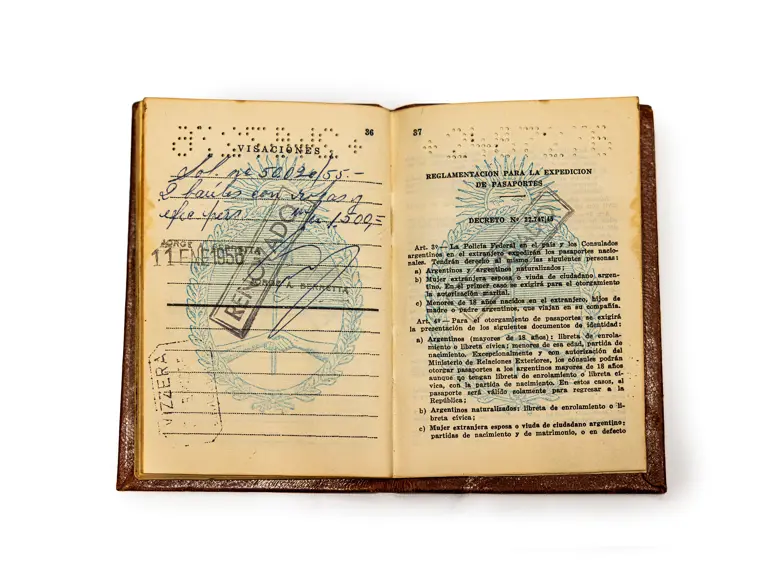 36
VISACIONES
Sol. nº 50020/55.-
2 baúles con ropas y
efec. pers. 1.500,=
JORGE A. BERRETTA
11 ENE 1956
RENOVADO
JORGE A. BERRETTA
VIZZERA
37
REGLAMENTACION PARA LA EXPEDICION
DE PASAPORTES
DECRETO Nº 32.747/48
Art. 3º — La Policía Federal en el país y los Consulados
argentinos en el extranjero expedirán los pasaportes nacio-
nales. Tendrán derecho al mismo las siguientes personas:
a) Argentinos y argentinos naturalizados;
b) Mujer extranjera esposa o viuda de ciudadano argen-
tino. En el primer caso se exigirá para el otorgamiento
la autorización marital.
c) Menores de 18 años nacidos en el extranjero, hijos de
madre o padre argentinos, que viajan en su compañía.
Art. 4º — Para el otorgamiento de pasaportes se exigirá
la presentación de los siguientes documentos de identidad:
a) Argentinos (mayores de 18 años): libreta de enrola-
miento o libreta cívica; menores de esa edad, partida de
nacimiento. Excepcionalmente y con autorización del
Ministerio de Relaciones Exteriores, los cónsules podrán
otorgar pasaportes a los argentinos mayores de 18 años
aunque no tengan libreta de enrolamiento o libreta cí-
vica, con la partida de nacimiento. En estos casos, el
pasaporte será válido solamente para regresar a la
República;
b) Argentinos naturalizados: libreta de enrolamiento o li-
breta cívica;
c) Mujer extranjera esposa o viuda de ciudadano argentino;
partidas de nacimiento y de matrimonio, o en defecto